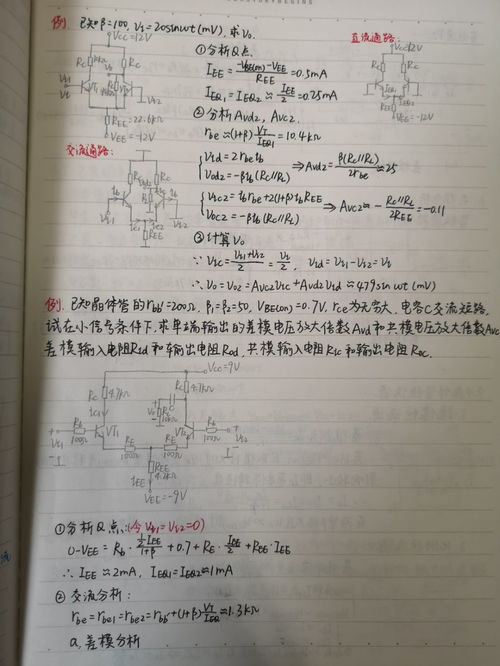 例. 已知β=100, Vs=20sinωt(mV), 求Vo.
直流通路:
VCC=12V
RC
RC
VT1
Vs1
Vs2
REE=22.6kΩ
VEE=-12V
①分析Q点
IEE = (-VBE(on)-VEE)/REE = 0.5mA
IEQ1=IEQ2≈IEE/2=0.25mA
VCC=12V
RC
RC
IEQ1
IEQ2
REE
VEE=-12V
②分析Avd2, Avc2.
rbe≈(1+β)VT/IEQ1=10.4kΩ
交流通路:
Vid=2rbe ib
Vod2=-βib(RC//RL)
⇒Avd2=β(RC//RL)/2rbe≈25
Vsc2=ib rbe+2(1+β)ib REE
Voc2=-βib(RC//RL)
⇒Avc2≈-RC//RL/2REE=-0.11
RC
REE
Vs1
Vs2
③计算Vo
∵Vsc=(Vs1+Vs2)/2=Vs/2, Vid=Vs1-Vs2=Vs
∴Vo=Vo2=Avc2Vsc+Avd2Vid≈479sinωt(mV)
例. 已知晶体管的rbb'=200Ω, β1=β2=50, VBE(on)=0.7V, rce为无穷大, 电容C交流短路,
试在小信号条件下,求单端输出的差模电压放大倍数Avd和共模电压放大倍数Avc
差模输入电阻Rid和输出电阻Rod, 共模输入电阻Ric和输出电阻Roc.
VCC=9V
RC
4.7kΩ
RC
4.7kΩ
Rb
100Ω
VT1
Rb
100Ω
Vs1
Vs2
RE
100Ω
RE
100Ω
REE
4.7kΩ
IEE
VEE=-9V
①分析Q点:(令Vs1=Vs2=0)
0-VEE=Rb·(½IEE)/(1+β)+0.7+RE·IEE/2+REE·IEE
∴IEE≈2mA, IEQ1=IEQ2≈1mA
②交流分析:
rbe=rbe1=rbe2=rbb'+(1+β)VT/IEQ≈1.3kΩ
a.差模分析